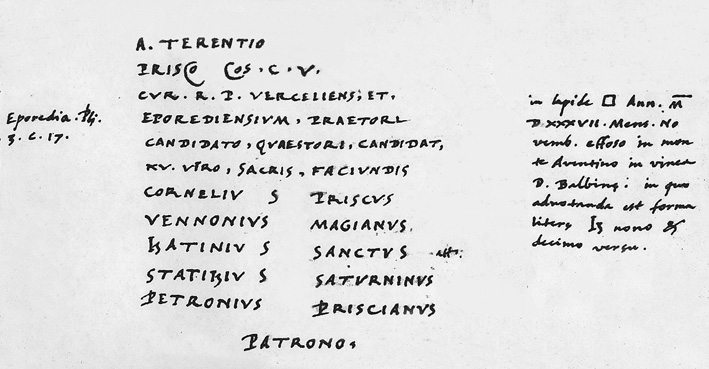 A. TERENTIO
PRISCO COS. C. V.
CVR. R. P. VERCELLENS; ET.
EPOREDIENSIVM, PRAETORI
CANDIDATO, QVAESTORI, CANDIDAT,
XV. VIRO, SACRIS, FACIVNDIS
CORNELIVS PRISCVS
VENNONIVS MAGIANVS.
BATINIVS SANCTVS
STATIBIVS SATVRNINVS
PETRONIVS PRISCIANVS
PATRONO.
Eporedia. Pli.
3. c. 17.
in lapide □ Ann. M̅
D XXXVII. Mens. No
vemb. effoso in mon
te Aventino in vinea
D. Balbinę: in quo
adnotanda est forma
literę B nono &
decimo versu.